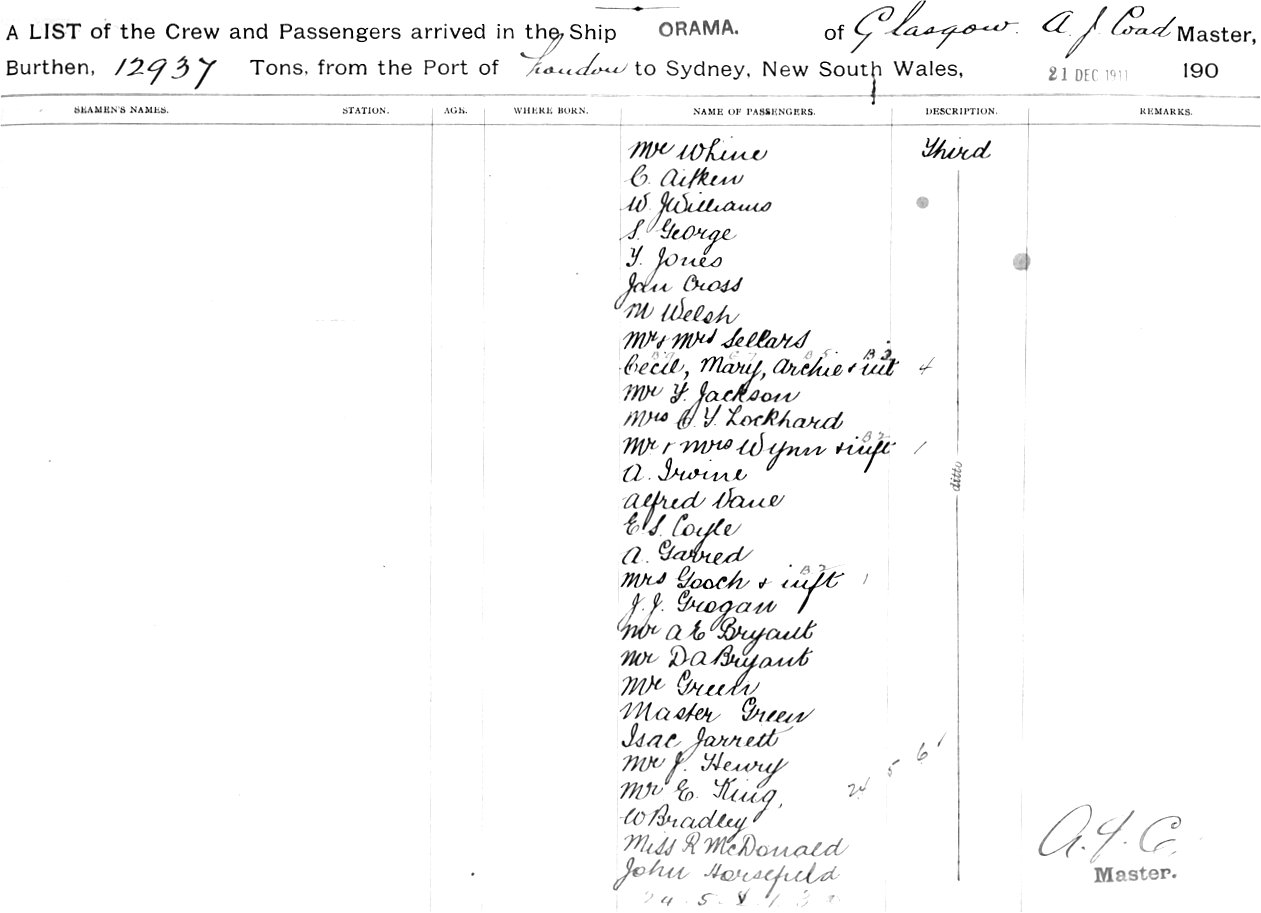 A LIST of the Crew and Passengers arrived in the Ship ORAMA. of Glasgow. A J Coad Master,
Burthen, 12937 Tons, from the Port of London to Sydney, New South Wales, 21 DEC 1911 190
SEAMEN'S NAMES. STATION. AGE. WHERE BORN. NAME OF PASSENGERS. DESCRIPTION. REMARKS.
Mr Whine Third
C. Aitken
W. J Williams
S. George
Y. Jones
Jan Cross
M Welsh
Mr & Mrs Sellars
B 3
Cecil, Mary, Archie & inft 4
Mr Y. Jackson
Mrs C. Y. Lockhard
B 2
Mr & Mrs Wynn & inft 1
A. Irvine ditto
Alfred Vane
E. S. Coyle
A. Garred
B 2
Mrs Gooch & inft 1
J. J. Grogan
Mr A E Bryant
Mr D A Bryant
Mr Green
Master Green
Isac Jarrett
Mr J. Henry
Mr E. King, 24 5 6 1
W Bradley
Miss R McDonald A. J. C.
John Horsefield Master.